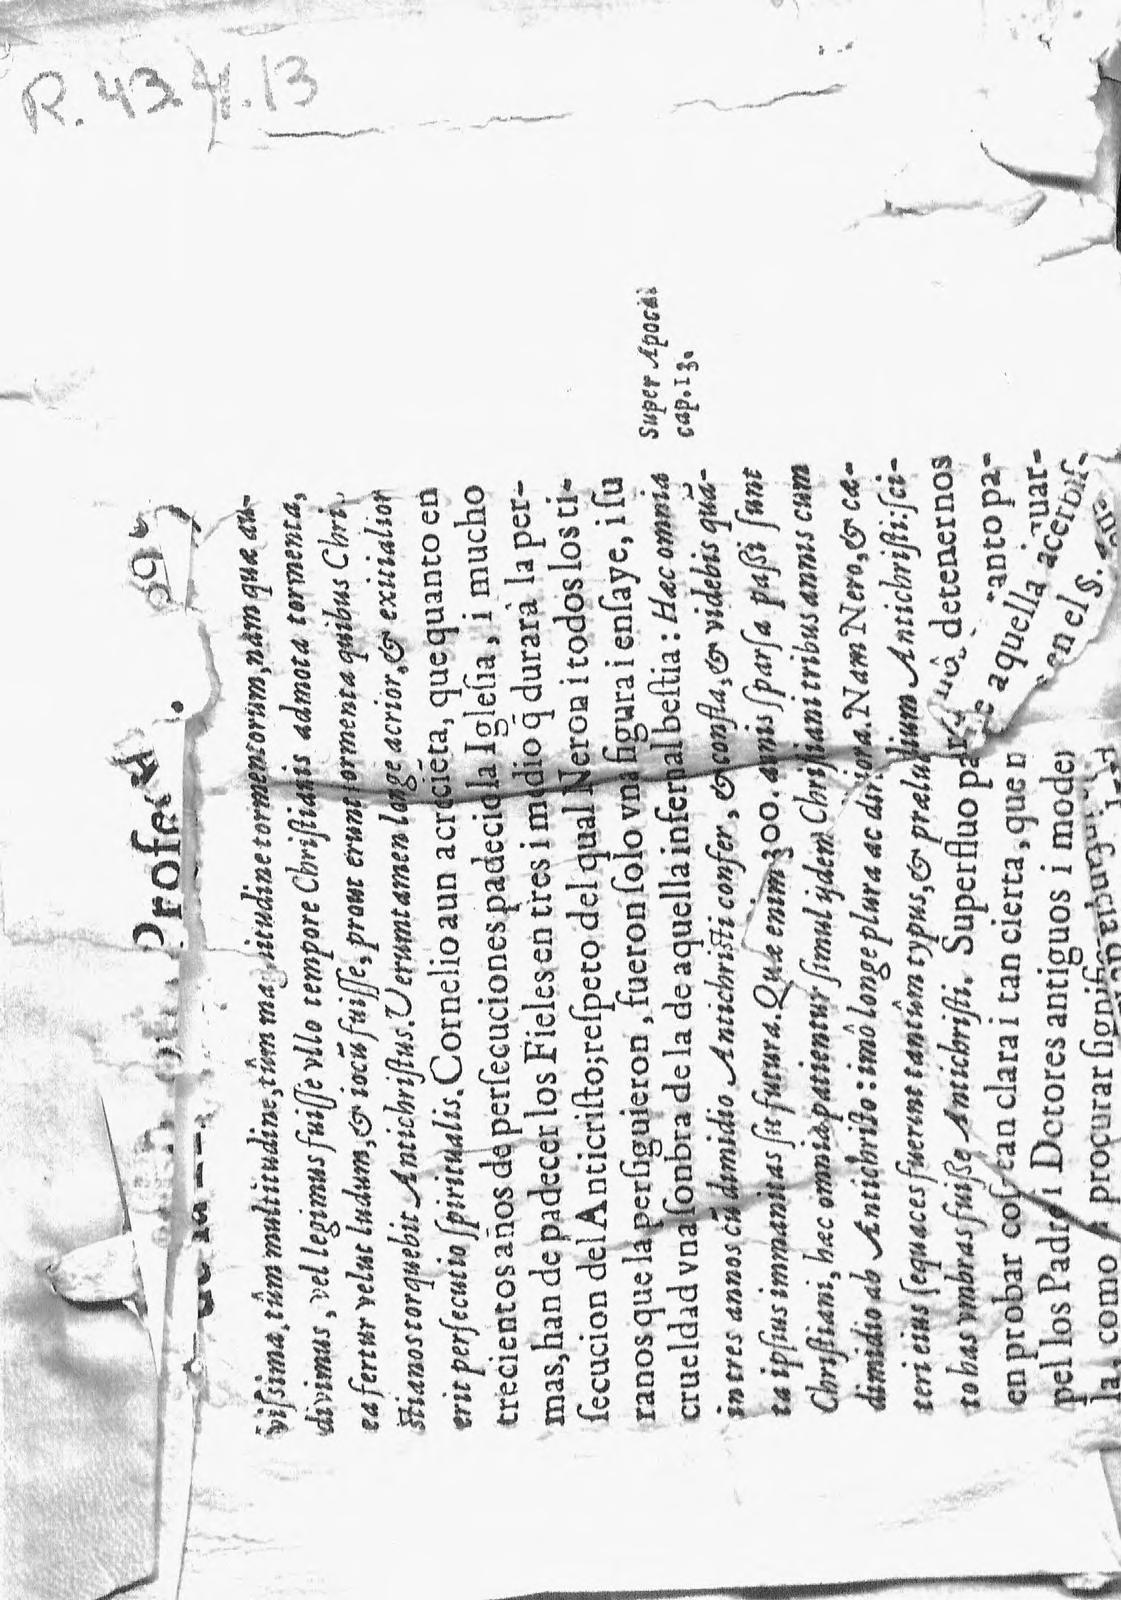 R. 43.4.13
Profe
vißima, tûm multitudine, tûm magnitudine tormentorum, nam quæ au-
divimus, vel legimus fuiſſe vllo tempore Chriſtianis admota tormenta,
ea fertur velut ludum, & iocũ fuiſſe, prout erunt tormenta quibus Chri-
ſtianos torquebit Antichriſtus. Uerumtamen longe acrior, & exitialior
erit perſecutio ſpiritualis. Cornelio aun acreciẽta, que quanto en
trecientos años de perſecuciones padecio la Igleſia, i mucho
mas, han de padecer los Fieles en tres i medio q̃ durarà la per-
ſecucion del Anticriſto; reſpeto del qual Neron i todos los ti-
ranos que la perſiguieron, fueron ſolo vna figura i enſaye, i ſu
crueldad vna ſombra de la de aquella infernal beſtia: Hæc omnia
in tres annos cũ dimidio Antichriſti confer, & confla, & videbis quã-
ta ipſius immanitas ſit futura. Quæ enim 300. annis ſparſa paßi ſunt
Chriſtiani, hæc omnia patientur ſimul ijdem Chriſtiani tribus annis cum
dimidio ab Antichriſto: imô longe plura ac diriora. Nam Nero, & cæ-
teri eius ſequaces fuerunt tantûm typus, & præludium Antichriſti: ſci-
to has vmbras fuiße Antichriſti. Superfluo detenernos
en probar coſa tan clara i tan cierta, que n aquella
pel los Padres i Dotores antiguos i moder en el §.
la, como a procurar ſignific acerbiſ-
Super Apocal
cap. 13.